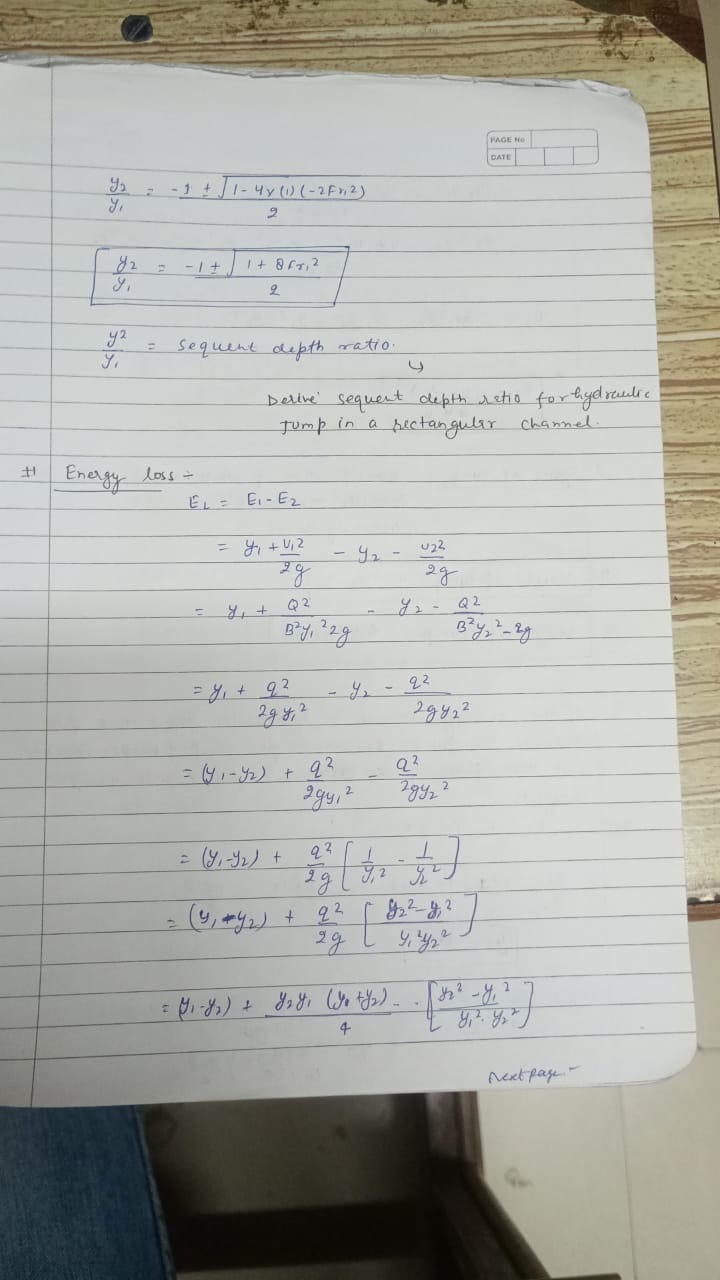 PAGE No
DATE
y₂/y₁ = -1 ± √(1 - 4x(1)(-2Fr₁2)) / 2
y₂/y₁ = -1 ± √(1 + 8Fr₁²) / 2
y2/y₁ = sequent depth ratio.
↳ Derive sequent depth ratio for hydraulic
Jump in a rectangular channel.
# Energy loss ÷
EL = E₁ - E₂
= y₁ + V₁2/2g - y₂ - V22/2g
= y₁ + Q2/B²y₁²2g - y₂ - Q2/B²y₂²-2g
= y₁ + q2/2gy₁² - y₂ - q2/2gy₂2
= (y₁-y₂) + q2/2gy₁² - q2/2gy₂²
= (y₁-y₂) + q2/2g [1/y₁2 - 1/y₂2]
= (y₁-y₂) + q2/2g [y₂²-y₁²/y₁²y₂²]
= (y₁-y₂) + y₂y₁(y₁+y₂)/4 . [y₂² - y₁²/y₁². y₂²]
Next page -